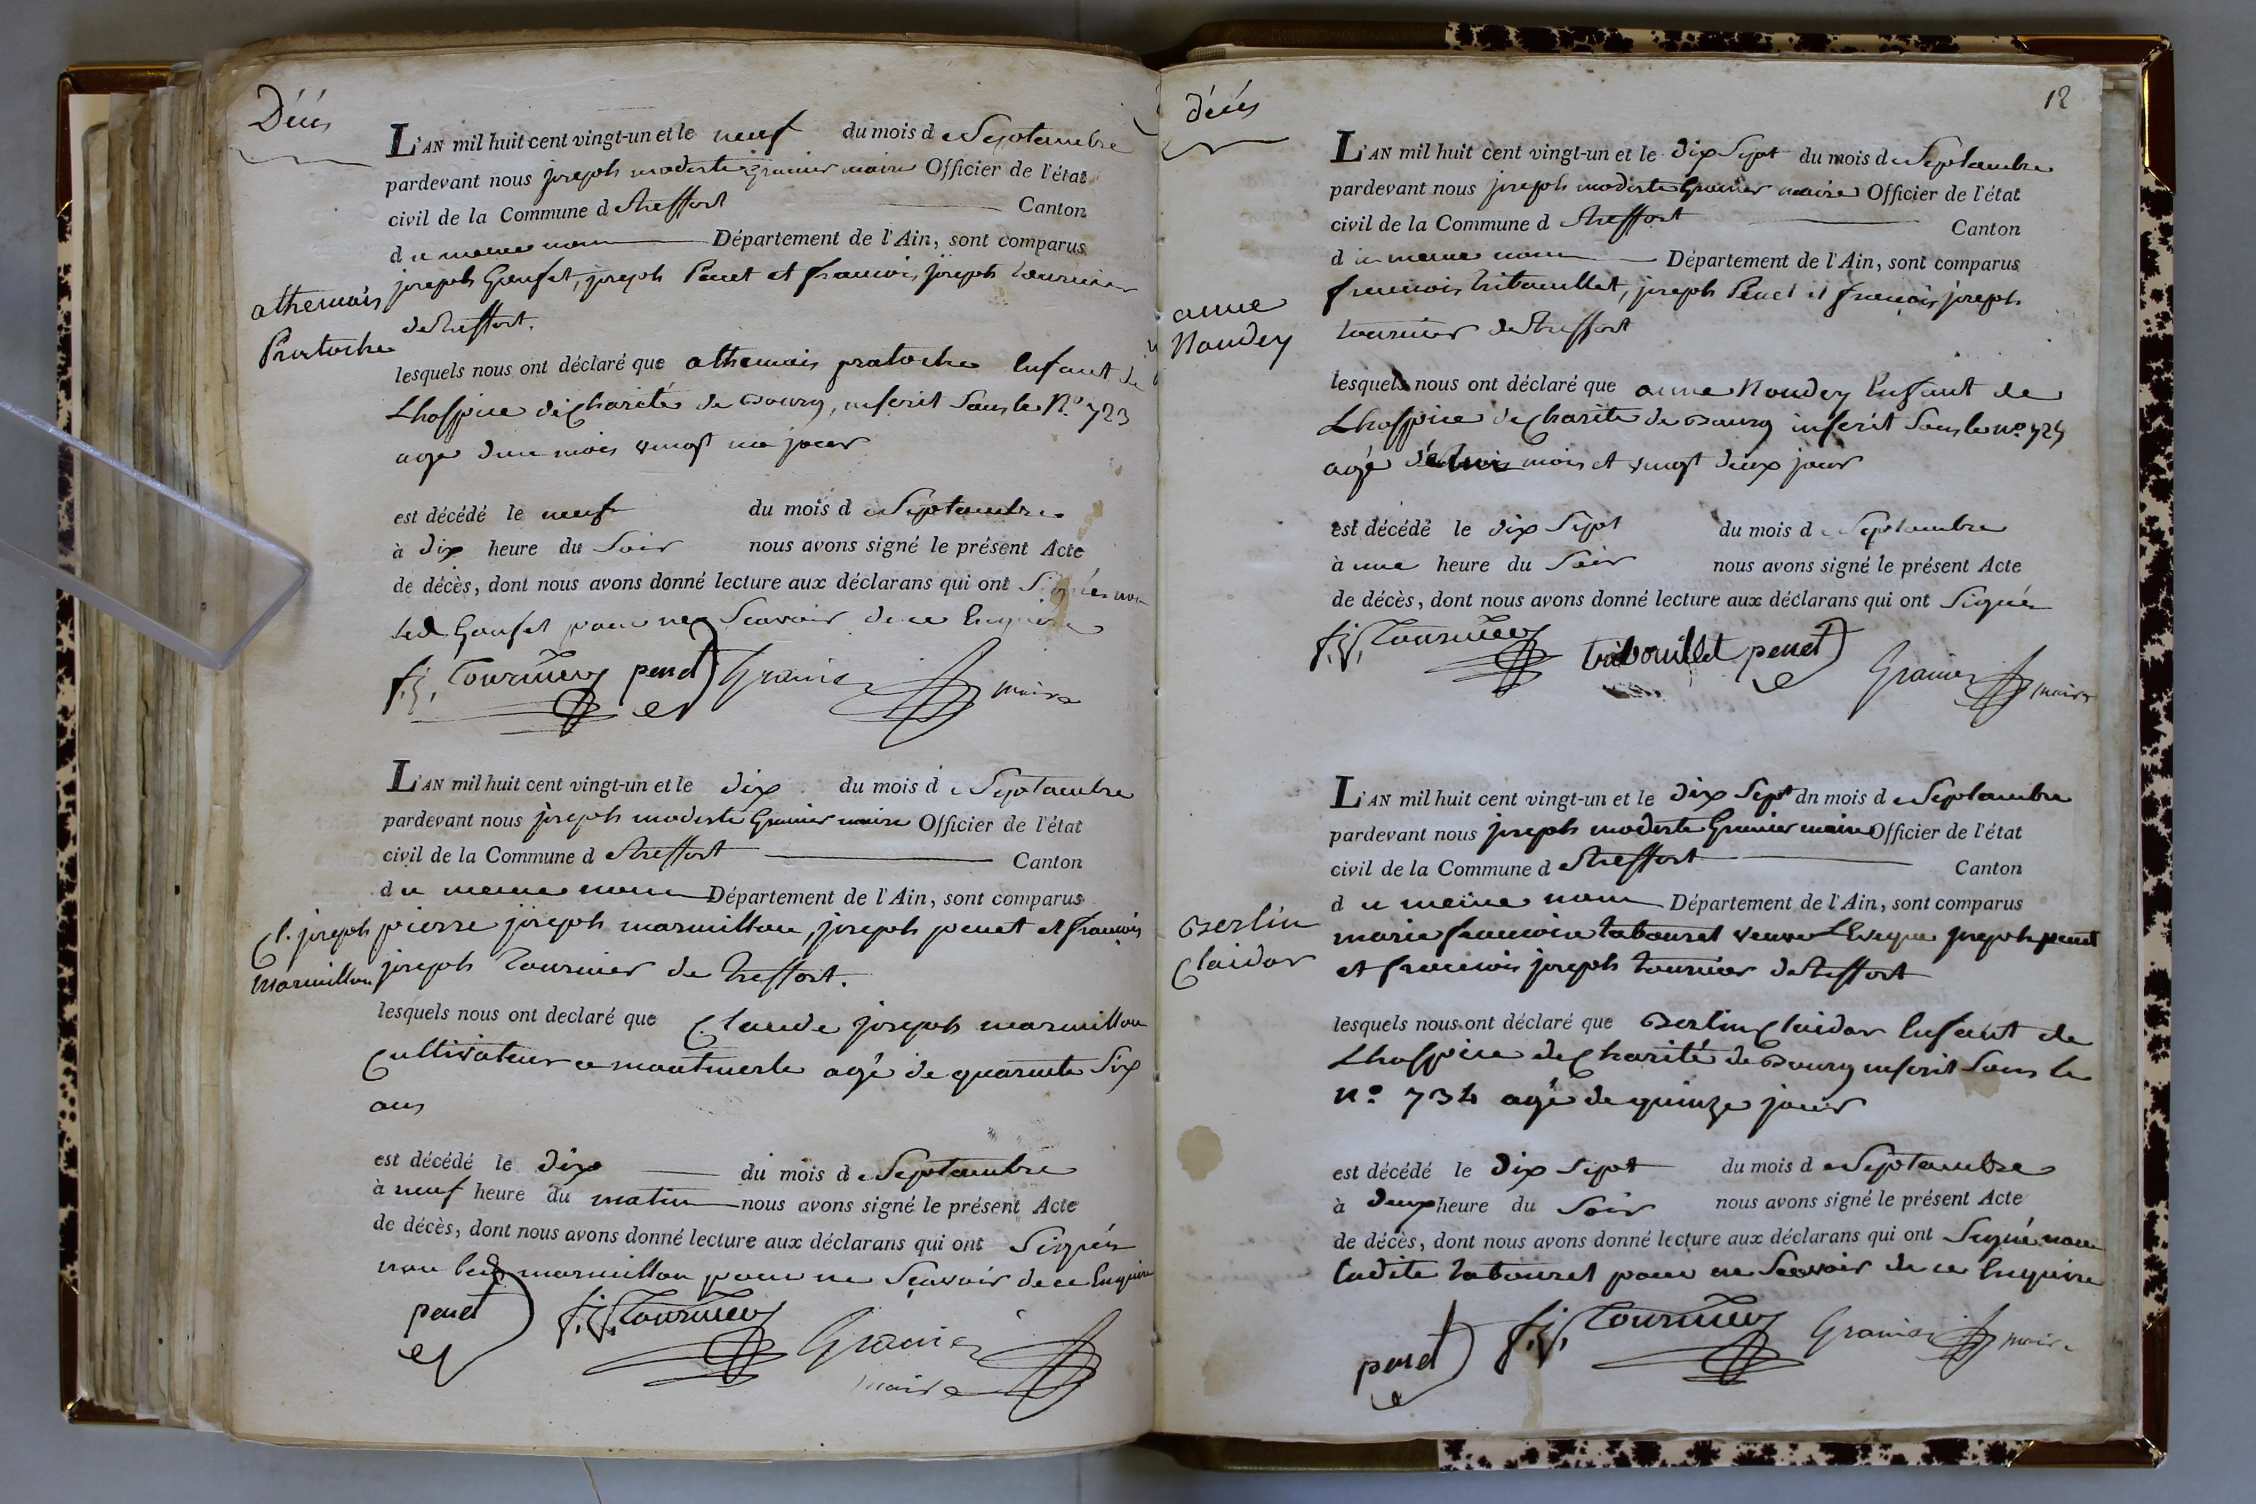 Décés
L'AN mil huit cent vingt-un et le neuf du mois de Septambre
pardevant nous joseph modeste Granier maire Officier de l'état
civil de la Commune de treffort Canton
du meme nom Département de l'Ain, sont comparus
joseph Gonfet, joseph Penet et francois joseph tournier
de treffort.
athemais
Pratoche
lesquels nous ont déclaré que athemais pratoche Enfant de
Lhospice de Charité de Bourg, inscrit Sous le N.º 723
agé dun mois vingt un jour
est décédé le neuf du mois de Septambre
à dix heure du Soir nous avons signé le présent Acte
de décès, dont nous avons donné lecture aux déclarans qui ont Signés non
led. Gonfet pour ne Scavoir de ce Enquis
f. j. Tournier penet Granier maire
L'AN mil huit cent vingt-un et le dix du mois de Septambre
pardevant nous joseph modeste Granier maire Officier de l'état
civil de la Commune de treffort Canton
du meme nom Département de l'Ain, sont comparus
Cl. joseph
Marmillon
pierre joseph marmillon, joseph penet et francois
joseph Tournier de treffort.
lesquels nous ont declaré que Claude joseph marmillon
Cultivateur a montmerle agé de quarante Six
ans
est décédé le dix du mois de Septambre
à neuf heure du matin nous avons signé le présent Acte
de décès, dont nous avons donné lecture aux déclarans qui ont Signés
non led. marmillon pour ne Scavoir de ce Enquis
penet f. j. Tournier Granier
maire
décés
12
L'AN mil huit cent vingt-un et le dix Sept du mois de Septambre
pardevant nous joseph modeste Granier maire Officier de l'état
civil de la Commune de treffort Canton
du meme nom Département de l'Ain, sont comparus
francois tribouillet, joseph Penet et francois joseph
tournier de treffort
anne
Noudey
lesquels nous ont déclaré que anne Noudey Enfant de
Lhospice de Charité de Bourg inscrit Sous le nº 725
agé de trois mois et vingt deux jour
est décédé le dix Sept du mois de Septambre
à une heure du Soir nous avons signé le présent Acte
de décès, dont nous avons donné lecture aux déclarans qui ont Signés
f. j. Tournier tribouillet penet Granier maire
L'AN mil huit cent vingt-un et le dix Sept dn mois de Septambre
pardevant nous joseph modeste Granier maire Officier de l'état
civil de la Commune de treffort Canton
du meme nom Département de l'Ain, sont comparus
Berlin
Claidor
marie francoise tabouret veuve Leveque joseph penet
et francois joseph tournier de treffort
lesquels nous ont déclaré que Berlin Claidor Enfant de
Lhospice de Charité de Bourg inscrit Sous le
nº 734 agé de quinze jour
est décédé le dix Sept du mois de Septambre
à deux heure du Soir nous avons signé le présent Acte
de décès, dont nous avons donné lecture aux déclarans qui ont Signé non
ladite tabouret pour ne Scavoir de ce Enquise
penet f. j. Tournier Granier maire